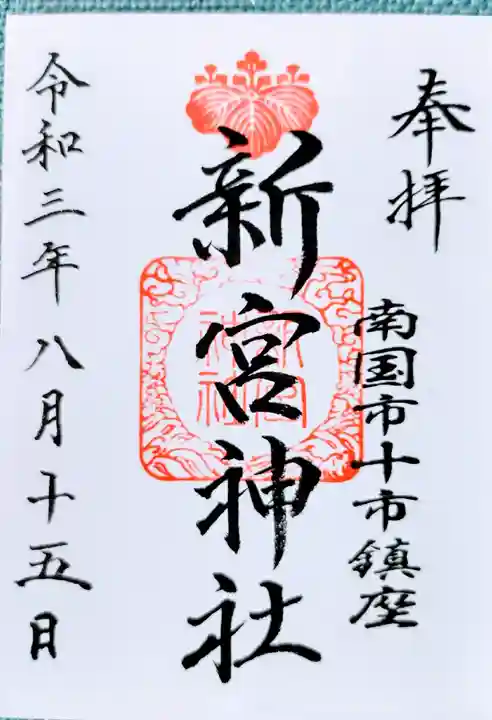 奉拝
南国市十市鎮座
新宮神社
新宮神社
令和三年八月十五日